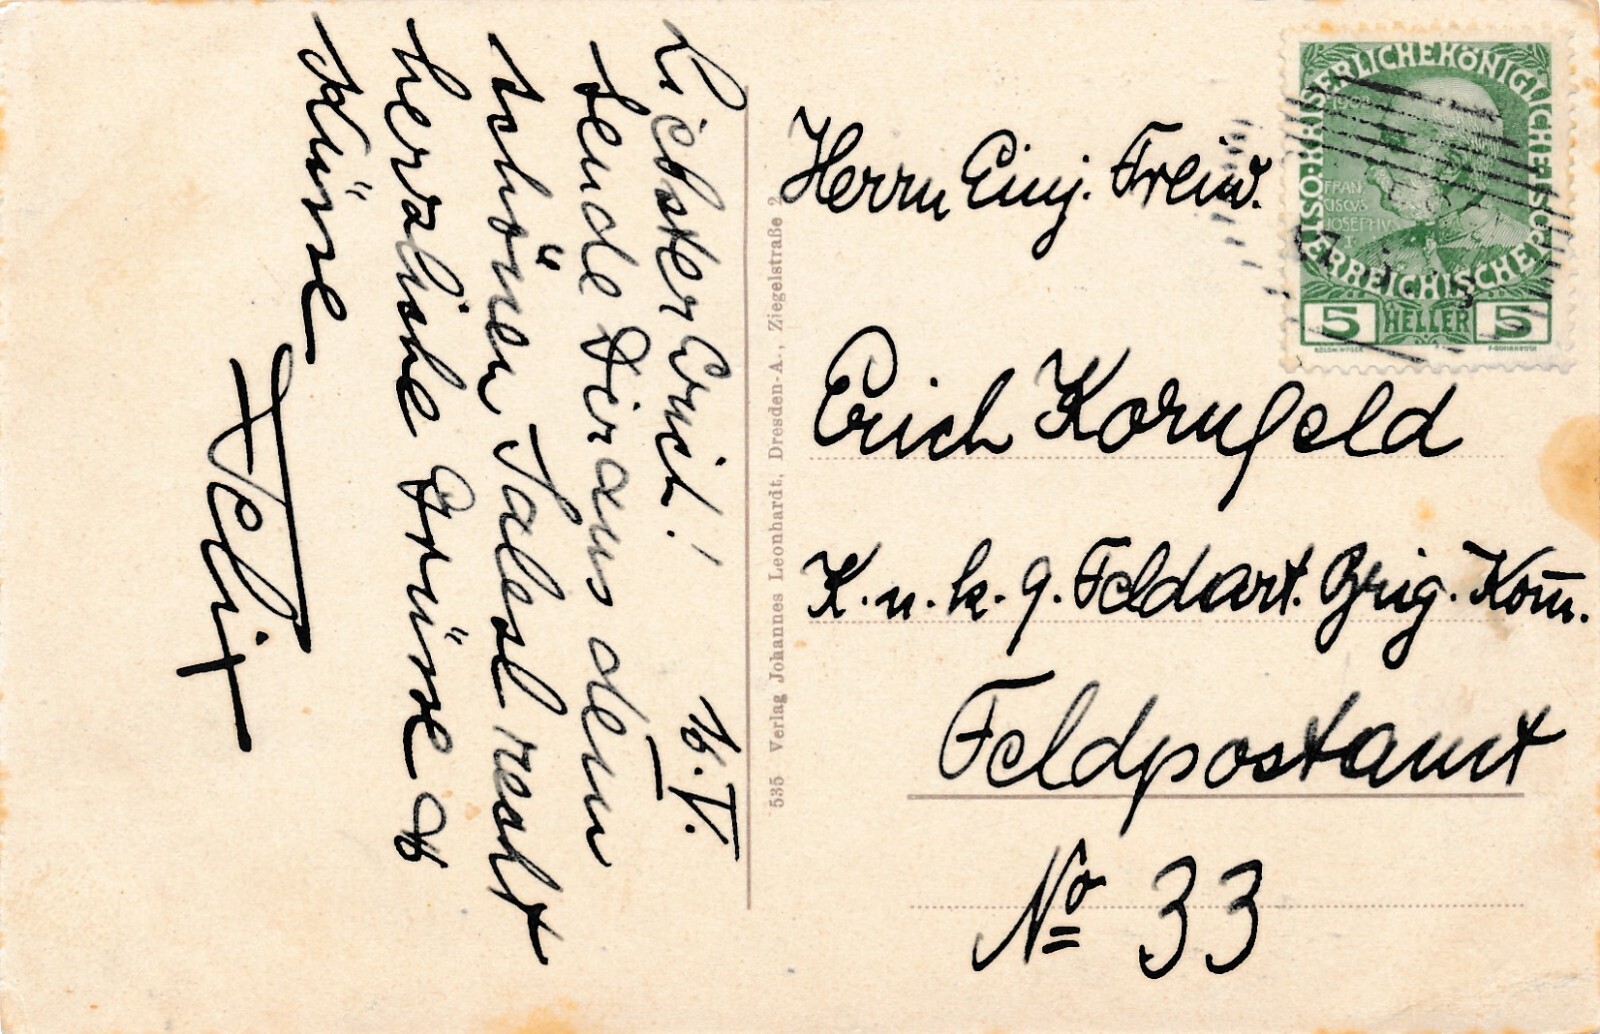 16. V.
Liebster Erich!
Sende Dir aus dem
schönen Salesl recht
herzliche Grüsse &
Küsse
Felix
535 Verlag Johannes Leonhardt, Dresden-A., Ziegelstraße 2
Herrn Einj. Freiw.
Erich Kornfeld
K. u. k. 9. Feldart. Brig. Kom.
Feldpostamt
No 33
KAISERLICHE KÖNIGLICHE ÖSTERREICHISCHE POST
1908
FRAN
CISCVS
IOSEPHVS
I
5 HELLER 5